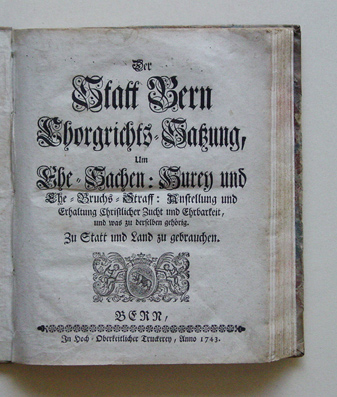 Der
Statt Bern
Chorgrichts-Satzung,
Um
Ehe-Sachen: Hurey und
Ehe-Bruchs-Straff: Anstellung und
Erhaltung Christlicher Zucht und Ehrbarkeit,
und was zu derselben gehörig.
Zu Statt und Land zu gebrauchen.
BERN,
In Hoch-Oberkeitlicher Truckerey, Anno 1743.